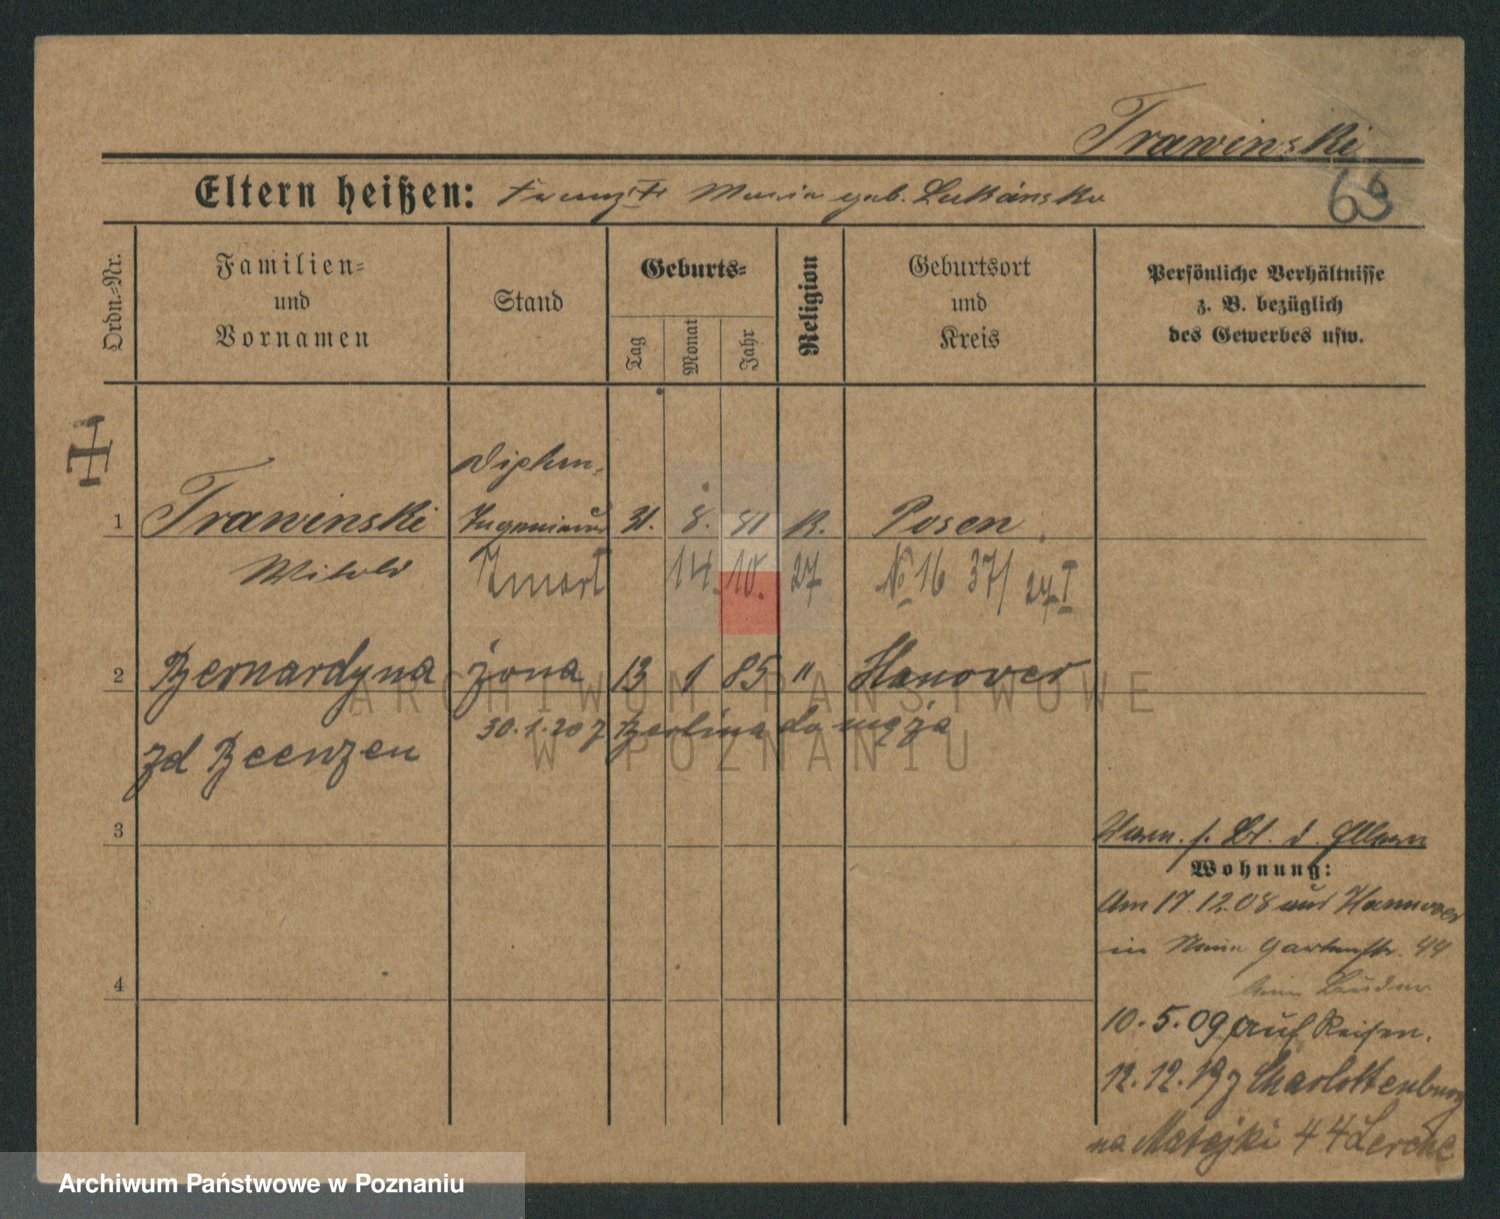 Trawinski
Eltern heißen: Franz †† Maria geb. Lukánska
63
Ordn.-Nr.
Familien-
und
Vornamen
Stand
Geburts-
Tag
Monat
Jahr
Religion
Geburtsort
und
Kreis
Persönliche Verhältnisse
z. B. bezüglich
des Gewerbes usw.
Diplom.
1 Trawinski Ingenieur 31. 8. 81 K. Posen
Witold Zmarł 14. 10. 27 № 16 37/ 27 I
2 Bernardyna żona 13 1 85 " Hanover
30.1.20 z Berlina do męża
zd Beenzen
3
4
Wohnung:
Am 17.12.08 aus Hannover
in Gartenstr. 44
10.5.09 auf Reisen.
12.12.19 z Charlottenburg
na Matejki 44 Lerche
ARCHIWUM PAŃSTWOWE
W POZNANIU
Archiwum Państwowe w Poznaniu